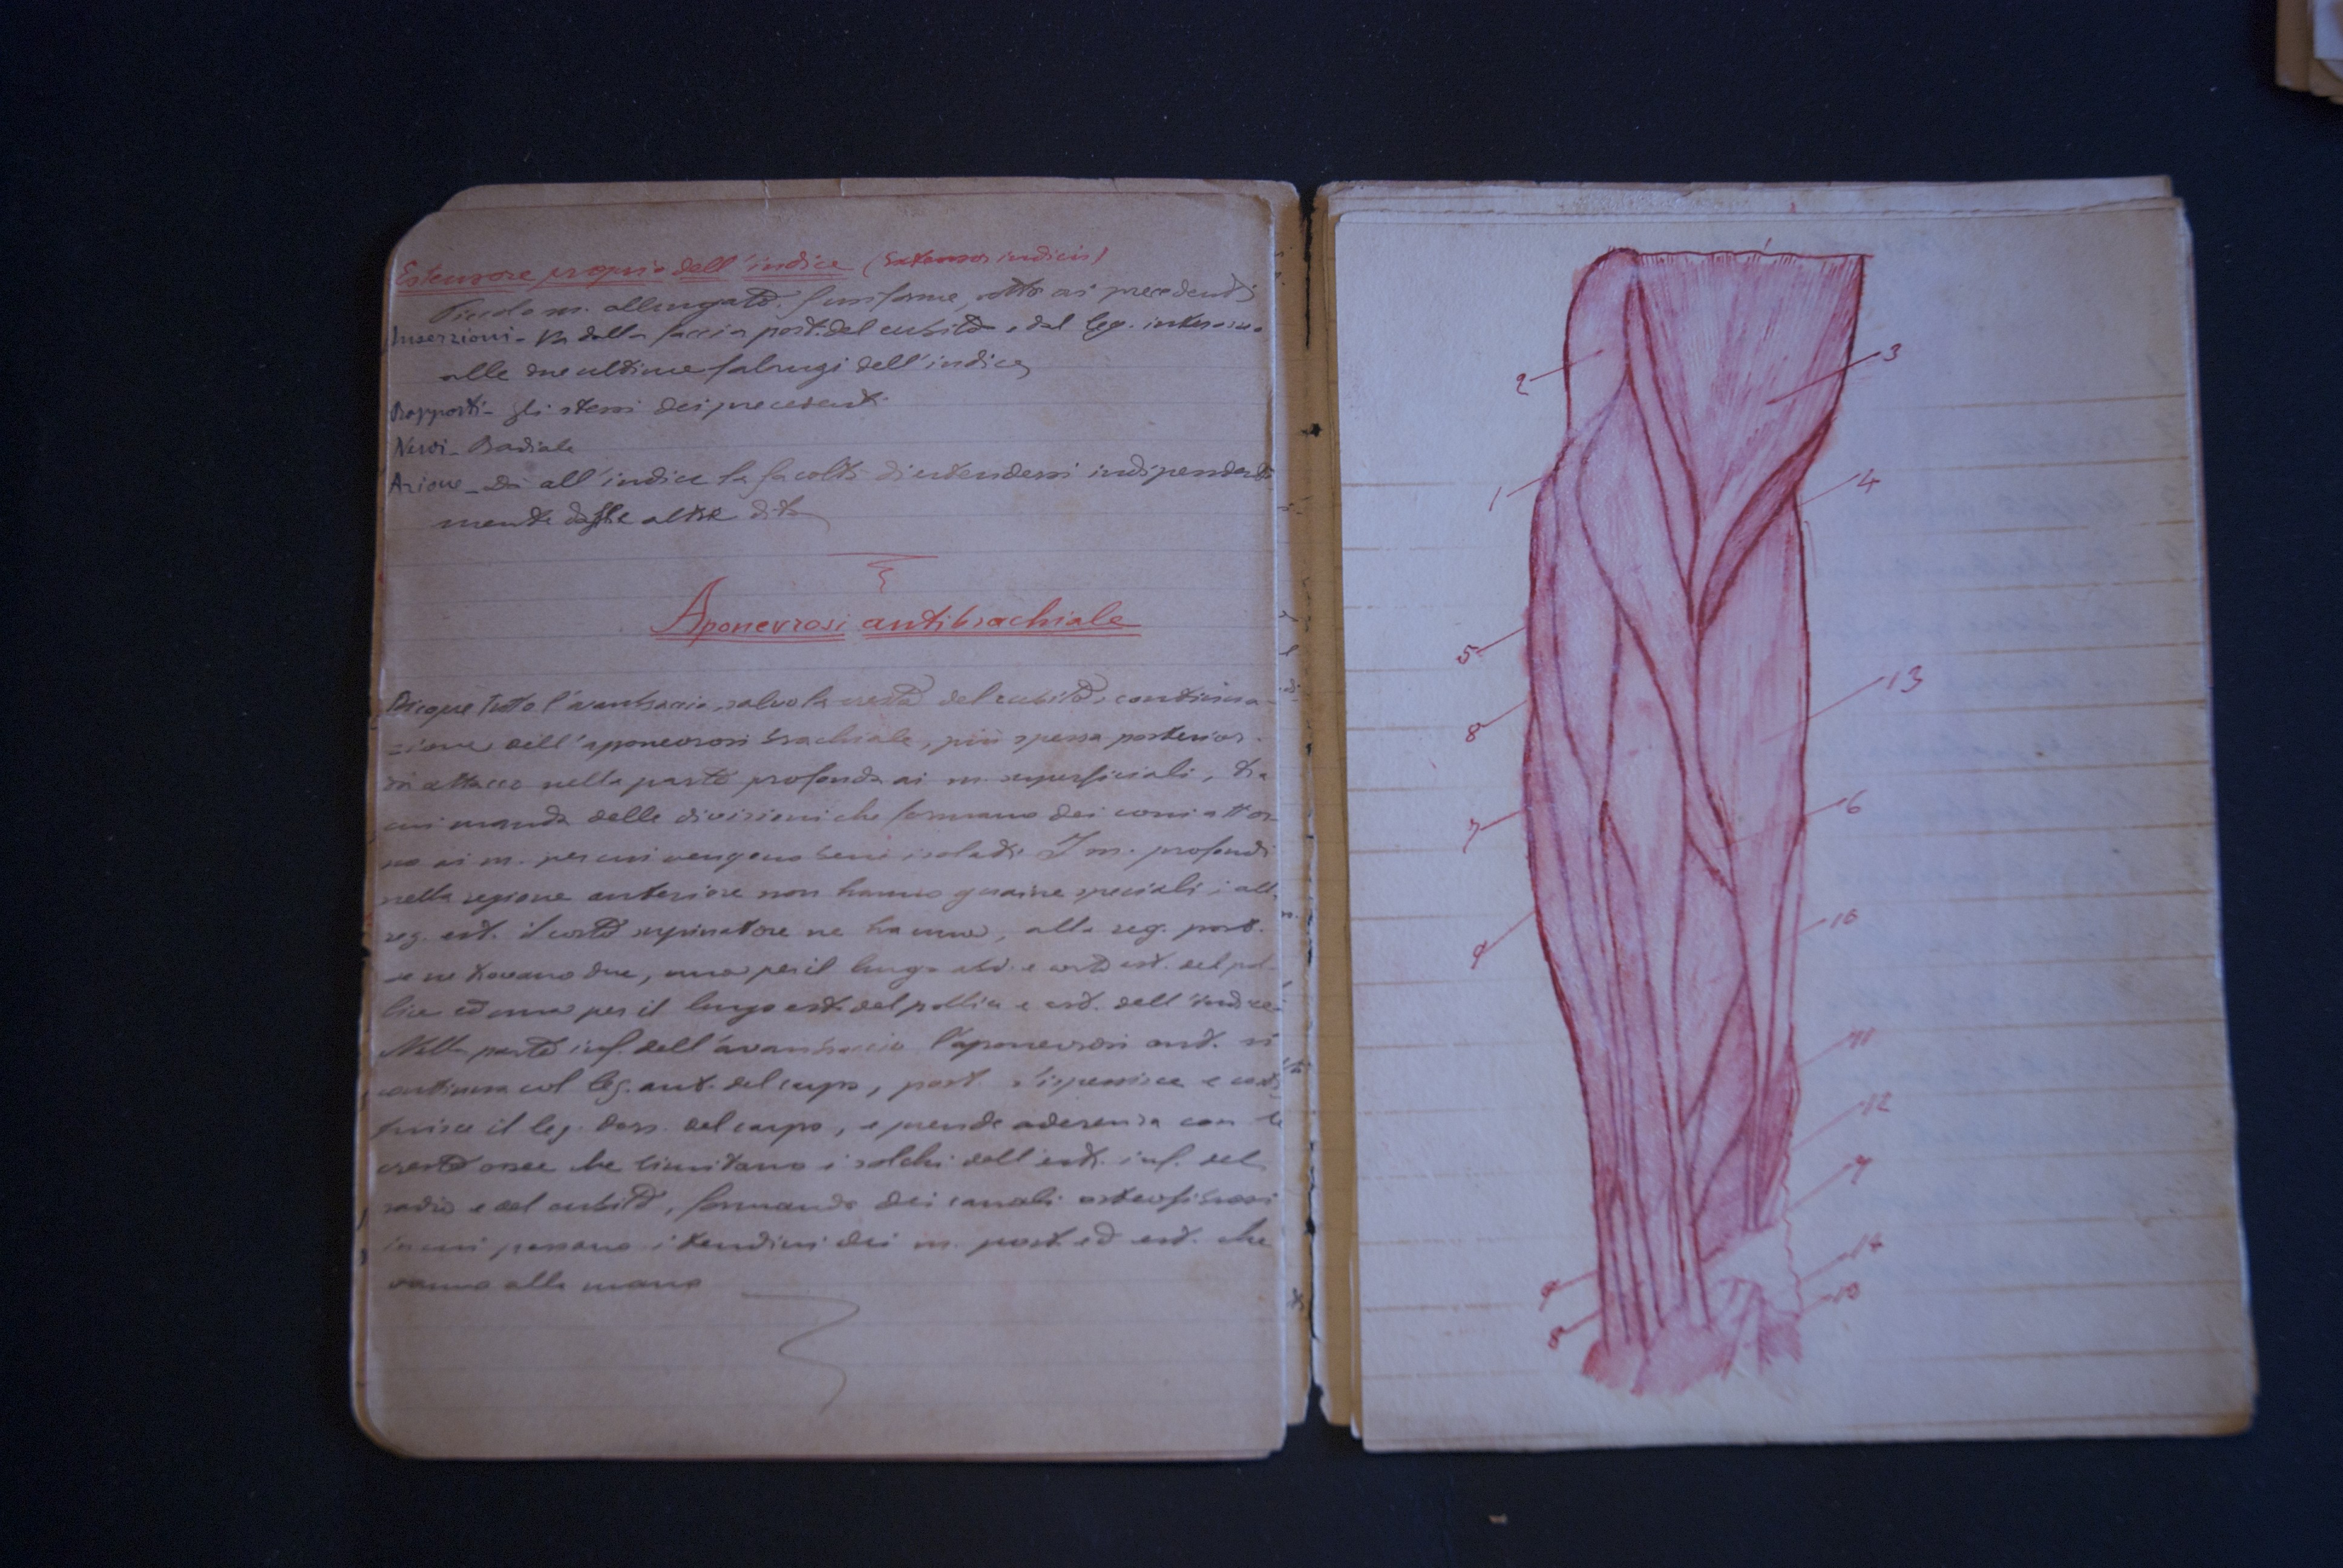 Estensore proprio dell'indice (Extensor indicis)
Piccolo m. allungato, fusiforme, sotto ai precedenti
Inserzioni - Va dalla faccia post. del cubito e dal leg. interosseo
alle due ultime falangi dell'indice
Rapporti - gli stessi dei precedenti
Nervi - Radiale
Azione - Dà all'indice la facoltà di estendersi indipendente
mente dalle altre dita
Aponevrosi antibrachiale
tutto l'avanbraccio, salvo la cresta del cubito, continua-
zione dell'aponevrosi brachiale, più spessa posterior.
dà attacco nella parte profonda ai m. superficiali, tra
cui manda delle divisioni che formano dei coni attor-
no ai m. per cui vengono bene isolati. I m. profondi
nella regione anteriore non hanno guaine speciali; alla
reg. est. il corto supinatore ne ha una, alla reg. post.
se ne trovano due, una per il lungo abd. e corto est. del pol-
lice ed una per il lungo est. del pollice e est. dell'indice
Nella parte inf. dell'avanbraccio l'aponevrosi ant. si
continua col leg. ant. del carpo, post. s'ispessisce e costi
tuisce il leg. dors. del carpo, e prende aderenza con le
creste ossee che limitano i solchi dell'est. inf. del
radio e del cubito, formando dei canali osteofibrosi
in cui passano i tendini dei m. post. ed est. che
vanno alla mano
2
3
1
4
5
13
8
7
6
9
10
11
12
7
14
9
8